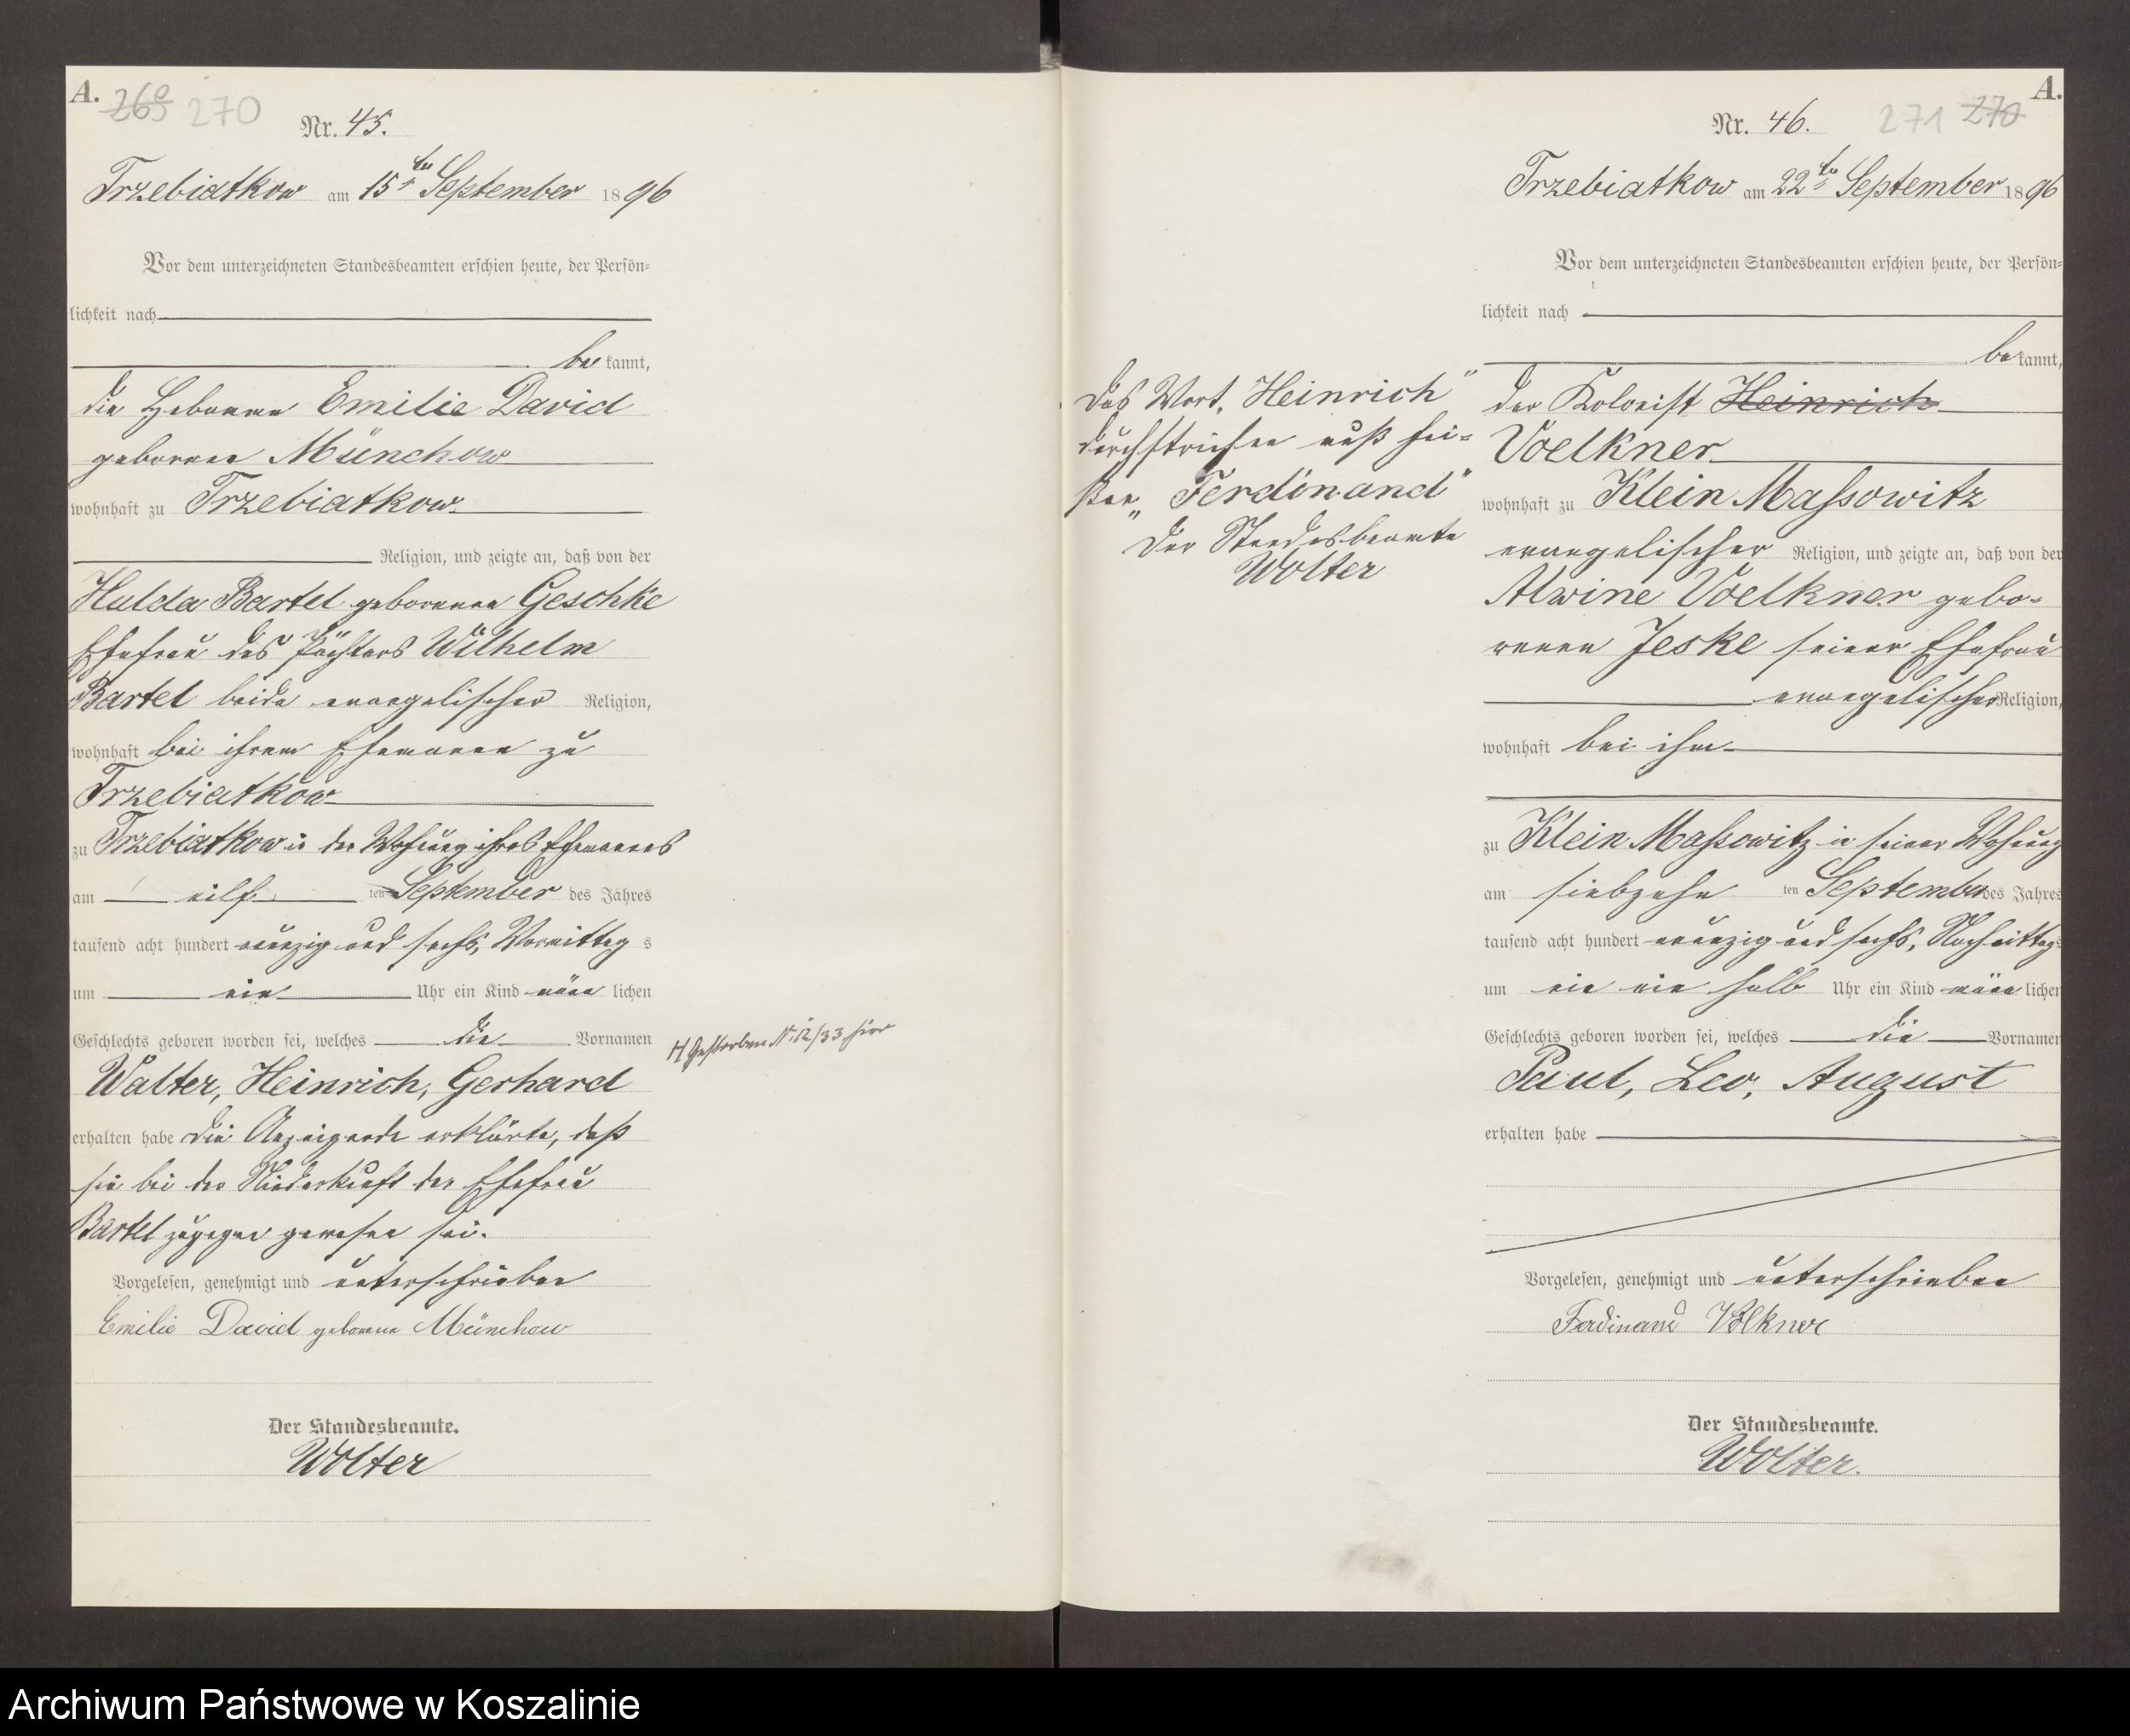 A. 269 270
Nr. 45.
Trzebiatkow am 15ten September 1896
Vor dem unterzeichneten Standesbeamten erschien heute, der Persön-
lichkeit nach
be kannt,
die Hebamme Emilie David
geborene Münchow
wohnhaft zu Trzebiatkow.
Religion, und zeigte an, daß von der
Hulda Bartel geborenen Geschke
Ehefrau des Pächters Wilhelm
Bartel beide evangelischer Religion,
wohnhaft bei ihrem Ehemanne zu
Trzebiatkow
zu Trzebiatkow in der Wohnung ihres Ehemannes
am eilf ten September des Jahres
tausend acht hundert neunzig und sechs, Vormittag s
um ein Uhr ein Kind männ lichen
Geschlechts geboren worden sei, welches die Vornamen
Walter, Heinrich, Gerhard
erhalten habe Die Anzeigende erklärte, daß
sie bei der Niederkunft der Ehefrau
Bartel zugegen gewesen sei.
Vorgelesen, genehmigt und unterschrieben
Emilie David geborene Münchow
Der Standesbeamte.
Wolter
H Gestorben Nr. 12/33 hier
A.
Nr. 46. 271 270
Trzebiatkow am 22ten September 1896
Vor dem unterzeichneten Standesbeamten erschien heute, der Persön-
lichkeit nach
be kannt,
der Kolonist Heinrich
Voelkner
wohnhaft zu Klein Massowitz
evangelischer Religion, und zeigte an, daß von der
Alwine Voelkner gebo-
renen Jeske seiner Ehefrau
evangelischer Religion,
wohnhaft bei ihm
zu Klein Massowitz in seiner Wohnung
am siebzehn ten September des Jahres
tausend acht hundert neunzig und sechs, Nachmittag s
um ein ein halb Uhr ein Kind männ lichen
Geschlechts geboren worden sei, welches die Vornamen
Paul, Leo, August
erhalten habe
Vorgelesen, genehmigt und unterschrieben
Ferdinand Völkner
Der Standesbeamte.
Wolter.
Das Wort „Heinrich“
durchstrichen muß hei-
ßen „Ferdinand“
Der Standesbeamte
Wolter
Archiwum Państwowe w Koszalinie